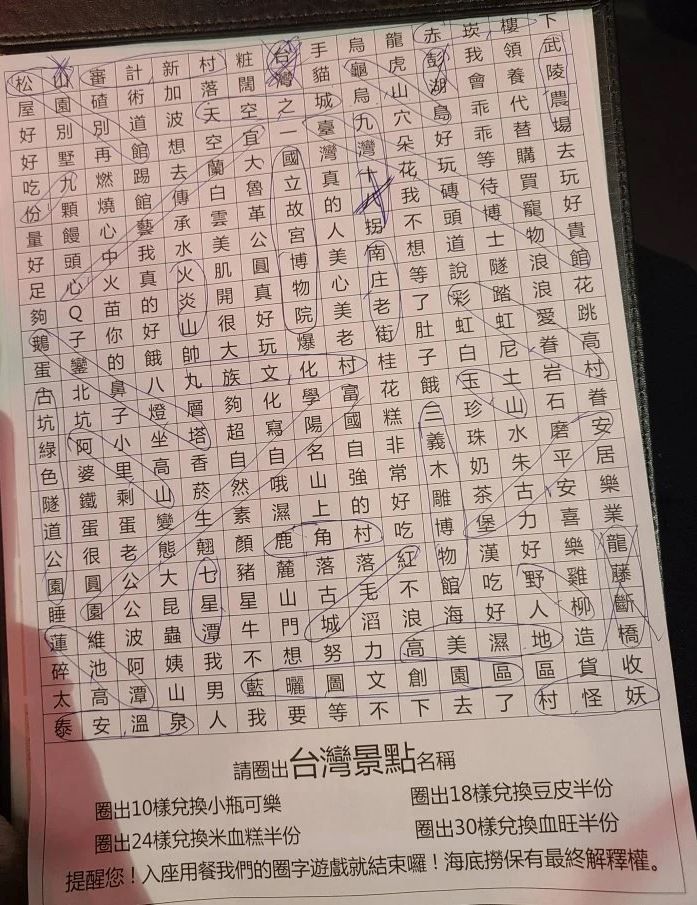 松山審計新村粧台手烏龍赤崁樓下
屋園碴術加落闊灣貓龜虎彭我領武
好別別道波天空之城烏山湖會養陵
好墅再館想空宜一臺九穴島乖代農
吃九燃踢去蘭大國灣灣朵好乖替場
份顆燒館傳白魯立真十花玩等購去
量饅心藝承雲革故的八我磚待買玩
好頭中我水美公宮人拐不頭博寵好
足心火真火肌圓博美南想道士物貴
夠Q苗的炎開真物心庄等說隧浪館
鵝子你好山很好院美老了彩踏浪花
蛋鑾的餓帥大玩爆老街肚虹虹愛跳
古北鼻八丸族文化村桂子白尼眷高
坑坑子燈層夠化學富花餓玉土岩村
綠阿小坐塔超寫陽國糕三珍山石眷
色婆里高香自自名自非義珠水磨安
隧鐵剩山菸然哦山強常木奶朱平居
道蛋蛋變生素濕上的好雕茶古安樂
公很老態翹顏鹿角村吃博堡力喜業
園圓公大七豬麓落落紅物漢好樂龍
睡園公昆星星山古毛不館吃野雞藤
蓮維波蟲潭牛門城滔浪海好人柳斷
碎池阿姨我不想努力高美濕地造橋
太高潭山男藍曬圖文創園區區貨收
泰安溫泉人我要等不下去了村怪妖
請圈出台灣景點名稱
圈出10樣兌換小瓶可樂 圈出18樣兌換豆皮半份
圈出24樣兌換米血糕半份 圈出30樣兌換血旺半份
提醒您!入座用餐我們的圈字遊戲就結束囉!海底撈保有最終解釋權。